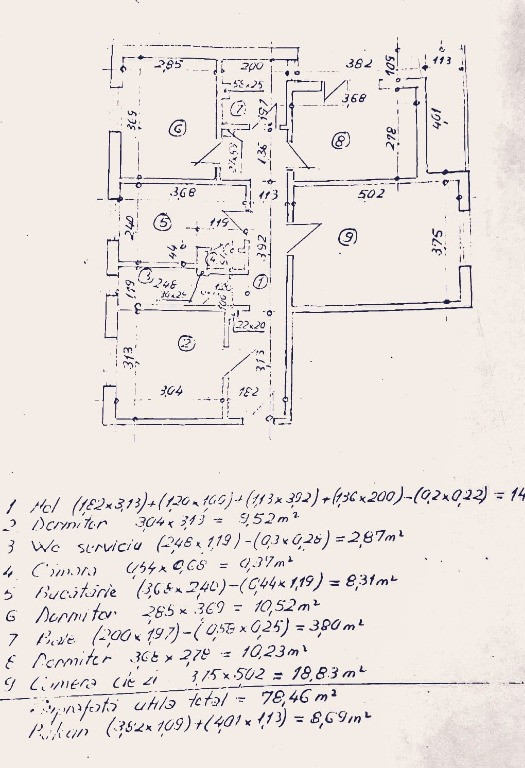 285
200
382
109
113
58x25
7
197
368
369
6
8
278
401
136
368
113
502
5
119
240
9
375
44
4
392
3
248
1
119
30x28
22x20
2
313
313
304
182
1 Hol (1,82x3,13)+(1,20x1,00)+(1,13x3,92)+(1,36x200)-(0,2x0,22) = 14
2 Dormitor 3,04 x 3,13 = 9,52 m²
3 Wc serviciu (2,48x1,19)-(0,3x0,28) = 2,87 m²
4 Cămara 0,54 x 0,68 = 0,37 m²
5 Bucătărie (3,68x2,40)-(0,44x1,19) = 8,31 m²
6 Dormitor 2,85 x 3,69 = 10,52 m²
7 Baie (2,00x1,97)-(0,58x0,25) = 3,80 m²
8 Dormitor 3,68 x 2,78 = 10,23 m²
9 Camera de zi 3,75 x 5,02 = 18,83 m²
Suprafață utilă total = 78,46 m²
Balcon (3,82x1,09)+(4,01x1,13) = 8,69 m²